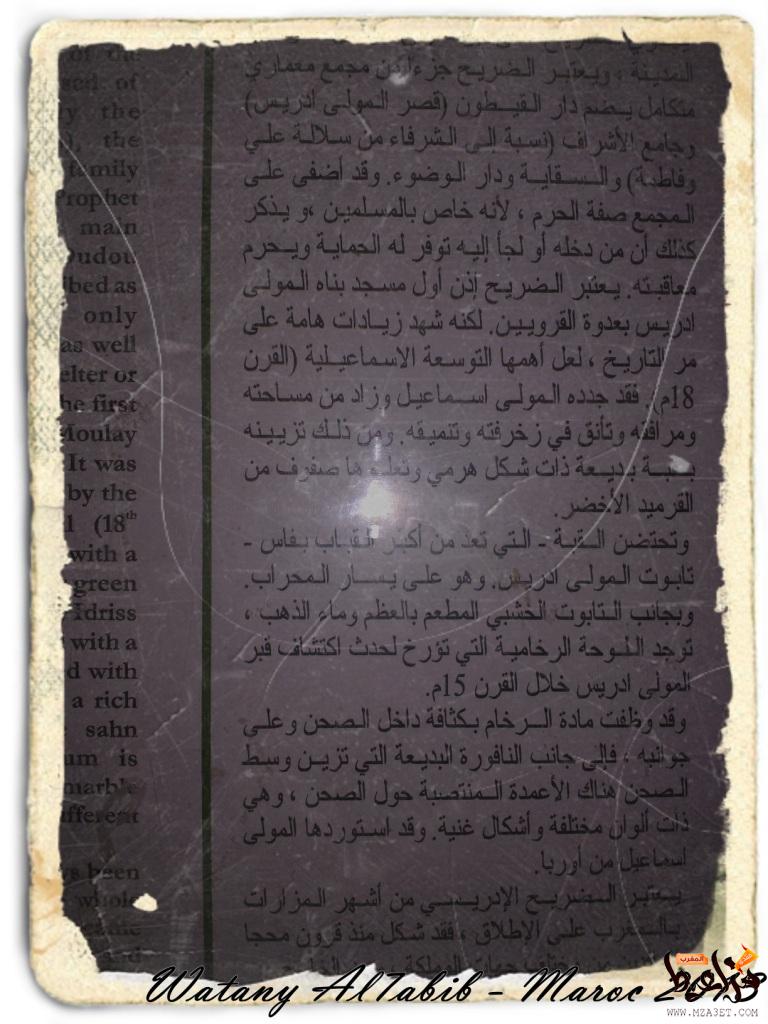 of the
sed of
the
, the
family
Prophet
main
Oudou
bed as
only
as well
elter or
he first
Moulay
It was
by the
(18th
with a
green
Idriss
with a
d with
a rich
sahn
um is
marble
ifferent
s been
whole
المدينة ، ويعتبر الضريح جزءا من مجمع معماري
متكامل يضم دار القيطون (قصر المولى ادريس)
وجامع الأشراف (نسبة إلى الشرفاء من سلالة علي
وفاطمة) والسقاية ودار الوضوء. وقد أضفى على
المجمع صفة الحرم ، لأنه خاص بالمسلمين ،و يذكر
كذلك أن من دخله أو لجأ إليه توفر له الحماية ويحرم
معاقبته. يعتبر الضريح إذن أول مسجد بناه المولى
ادريس بعدوة القرويين. لكنه شهد زيادات هامة على
مر التاريخ ، لعل أهمها التوسعة الاسماعيلية (القرن
18م). فقد جدده المولى اسماعيل وزاد من مساحته
ومرافقه وتأنق في زخرفته وتنميقه. ومن ذلك تزيينه
بقبة بديعة ذات شكل هرمي وتعلوها صفوف من
القرميد الأخضر.
وتحتضن القبة - التي تعد من أكبر القباب بفاس -
تابوت المولى ادريس. وهو على يسار المحراب.
وبجانب التابوت الخشبي المطعم بالعظم وماء الذهب ،
توجد اللوحة الرخامية التي تؤرخ لحدث اكتشاف قبر
المولى ادريس خلال القرن 15م.
وقد وظفت مادة الرخام بكثافة داخل الصحن وعلى
جوانبه ، فإلى جانب النافورة البديعة التي تزين وسط
الصحن هناك الأعمدة المنتصبة حول الصحن ، وهي
ذات ألوان مختلفة وأشكال غنية. وقد استوردها المولى
اسماعيل من أوربا.
يعتبر الضريح الإدريسي من أشهر المزارات
بالمغرب على الإطلاق ، فقد شكل منذ قرون محجا
Watany Al7abib - Maroc
المغرب
WWW.MZA3ET.COM